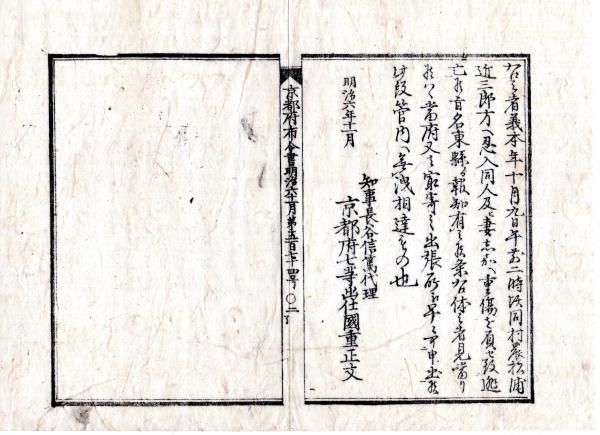 右之者義本年十月九日午前二時頃同村農松浦
近三郎方ヘ忍入同人及ヒ妻志かヘ重傷を負セ致逃
亡候旨名東縣ゟ報知有之候条右体之者見當り
候ハヽ當府又ハ最寄之出張所ヘ早々可申出候
此段管内ヘ無洩相達るもの也
明治六年十一月
知事長谷信篤代理
京都府七等出仕國重正文
京都府布令書明治六年十一月第五百七十四号 〇二